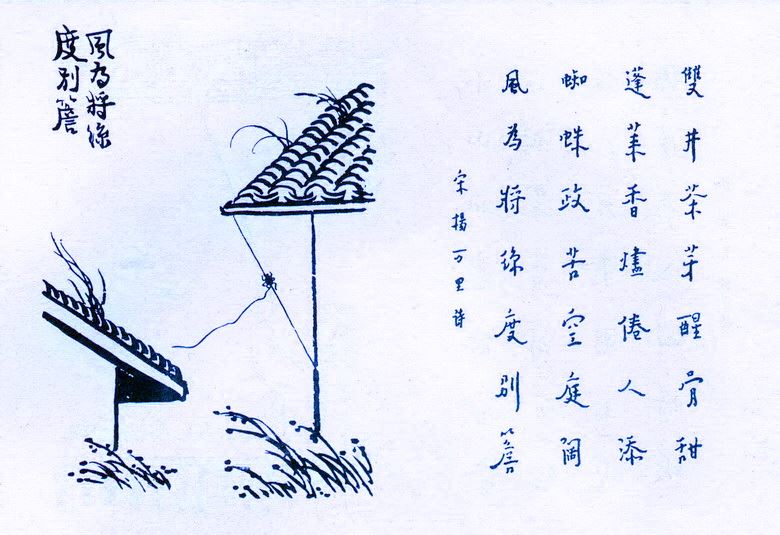 雙井茶芽醒骨甜
蓬莱香燼倦人添
蜘蛛政苦空庭闊
風為將絲度別簷
宋楊万里诗
風为將絲
度別簷